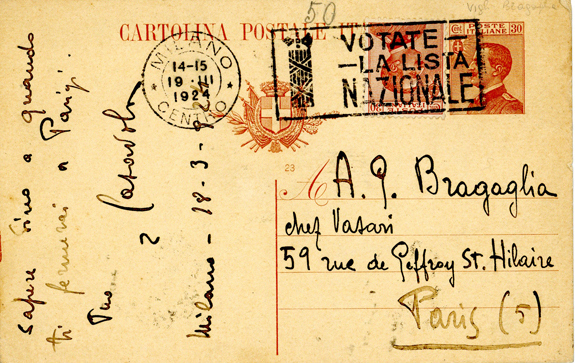 50
CARTOLINA POSTALE
MILANO
14-15
19 · III
1924
CENTRO
VOTATE
LA LISTA
NAZIONALE
POSTE
ITALIANE
30
23
A A. G. Bragaglia
chez Vasari
59 rue de Geffroy St. Hilaire
Paris (5)
sapere sino a quando
ti fermerai a Parigi.
Tuo
Casavola
Milano - 18-3-